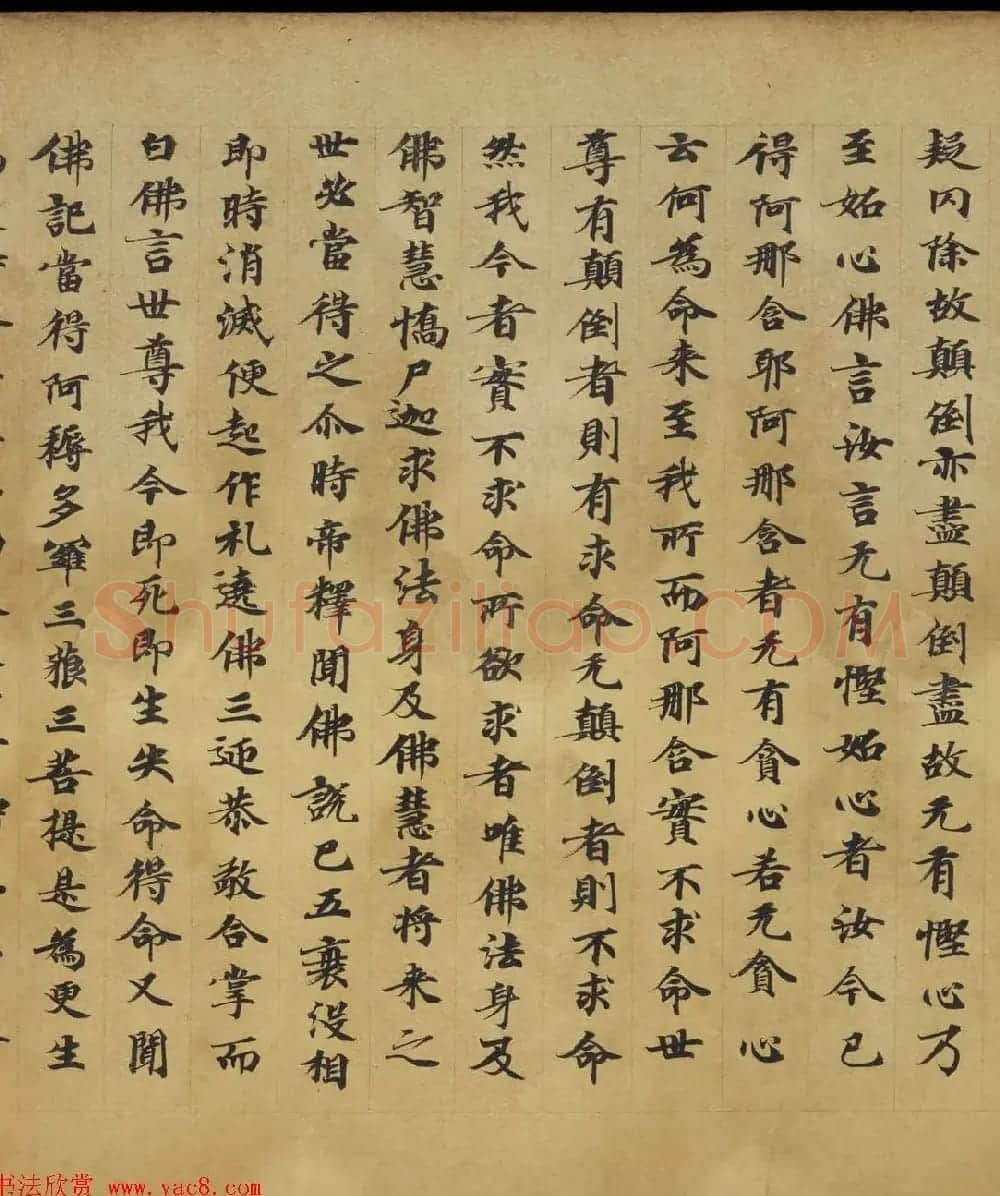 疑冈除故顛倒亦盡顛倒盡故无有慳心乃
至妬心佛言汝言无有慳妬心者汝今已
得阿那含耶阿那含者无有貪心若无貪心
云何為命来至我所而阿那含實不求命世
尊有顛倒者則有求命无顛倒者則不求命
然我今者實不求命所欲求者唯佛法身及
佛智慧憍尸迦求佛法身及佛慧者将来之
世必當得之尒時帝釋聞佛說已五衰没相
即時消滅便起作礼遶佛三迊恭敬合掌而
白佛言世尊我今即死即生失命得命又聞
佛記當得阿耨多羅三藐三菩提是為更生
Shufaziliao.COM
书法欣赏 www.yac8.com